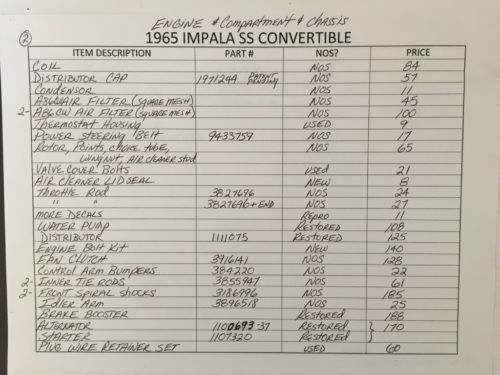 ENGINE & Compartment & Chassis
② 1965 IMPALA SS CONVERTIBLE
ITEM DESCRIPTION PART # NOS? PRICE
COIL NOS 84
DISTRIBUTOR CAP 1971244 PATENT PENDING NOS 57
CONDENSOR NOS 11
A86CW AIR FILTER (SQUARE MESH) NOS 45
2- A86CW AIR FILTER (SQUARE MESH) NOS 100
Thermostat Housing USED 9
POWER STEERING BELT 9433759 NOS 17
Rotor, Points, choke tube, NOS 65
wingnut, Air cleaner stud
VALVE COVER BOLTS used 21
AIR CLEANER LID SEAL NEW 8
Throttle Rod 3827696 NOS 24
" " 3827696 + END NOS 27
MORE DECALS Repro 11
WATER PUMP RESTORED 108
DISTRIBUTOR 1111075 RESTORED 125
ENGINE Bolt Kit NEW 140
FAN CLUTCH 3916141 NOS 128
CONTROL ARM BUMPERS 384220 NOS 22
2- INNER TIE RODS 3855947 NOS 61
2- FRONT SPIRAL SHOCKS 3186996 NOS 185
IDLER ARM 3896518 NOS 25
BRAKE BOOSTER Restored 188
ALTERNATOR 1100693-37 Restored } 170
STARTER 1107320 Restored
PLUG WIRE RETAINER SET USED 60